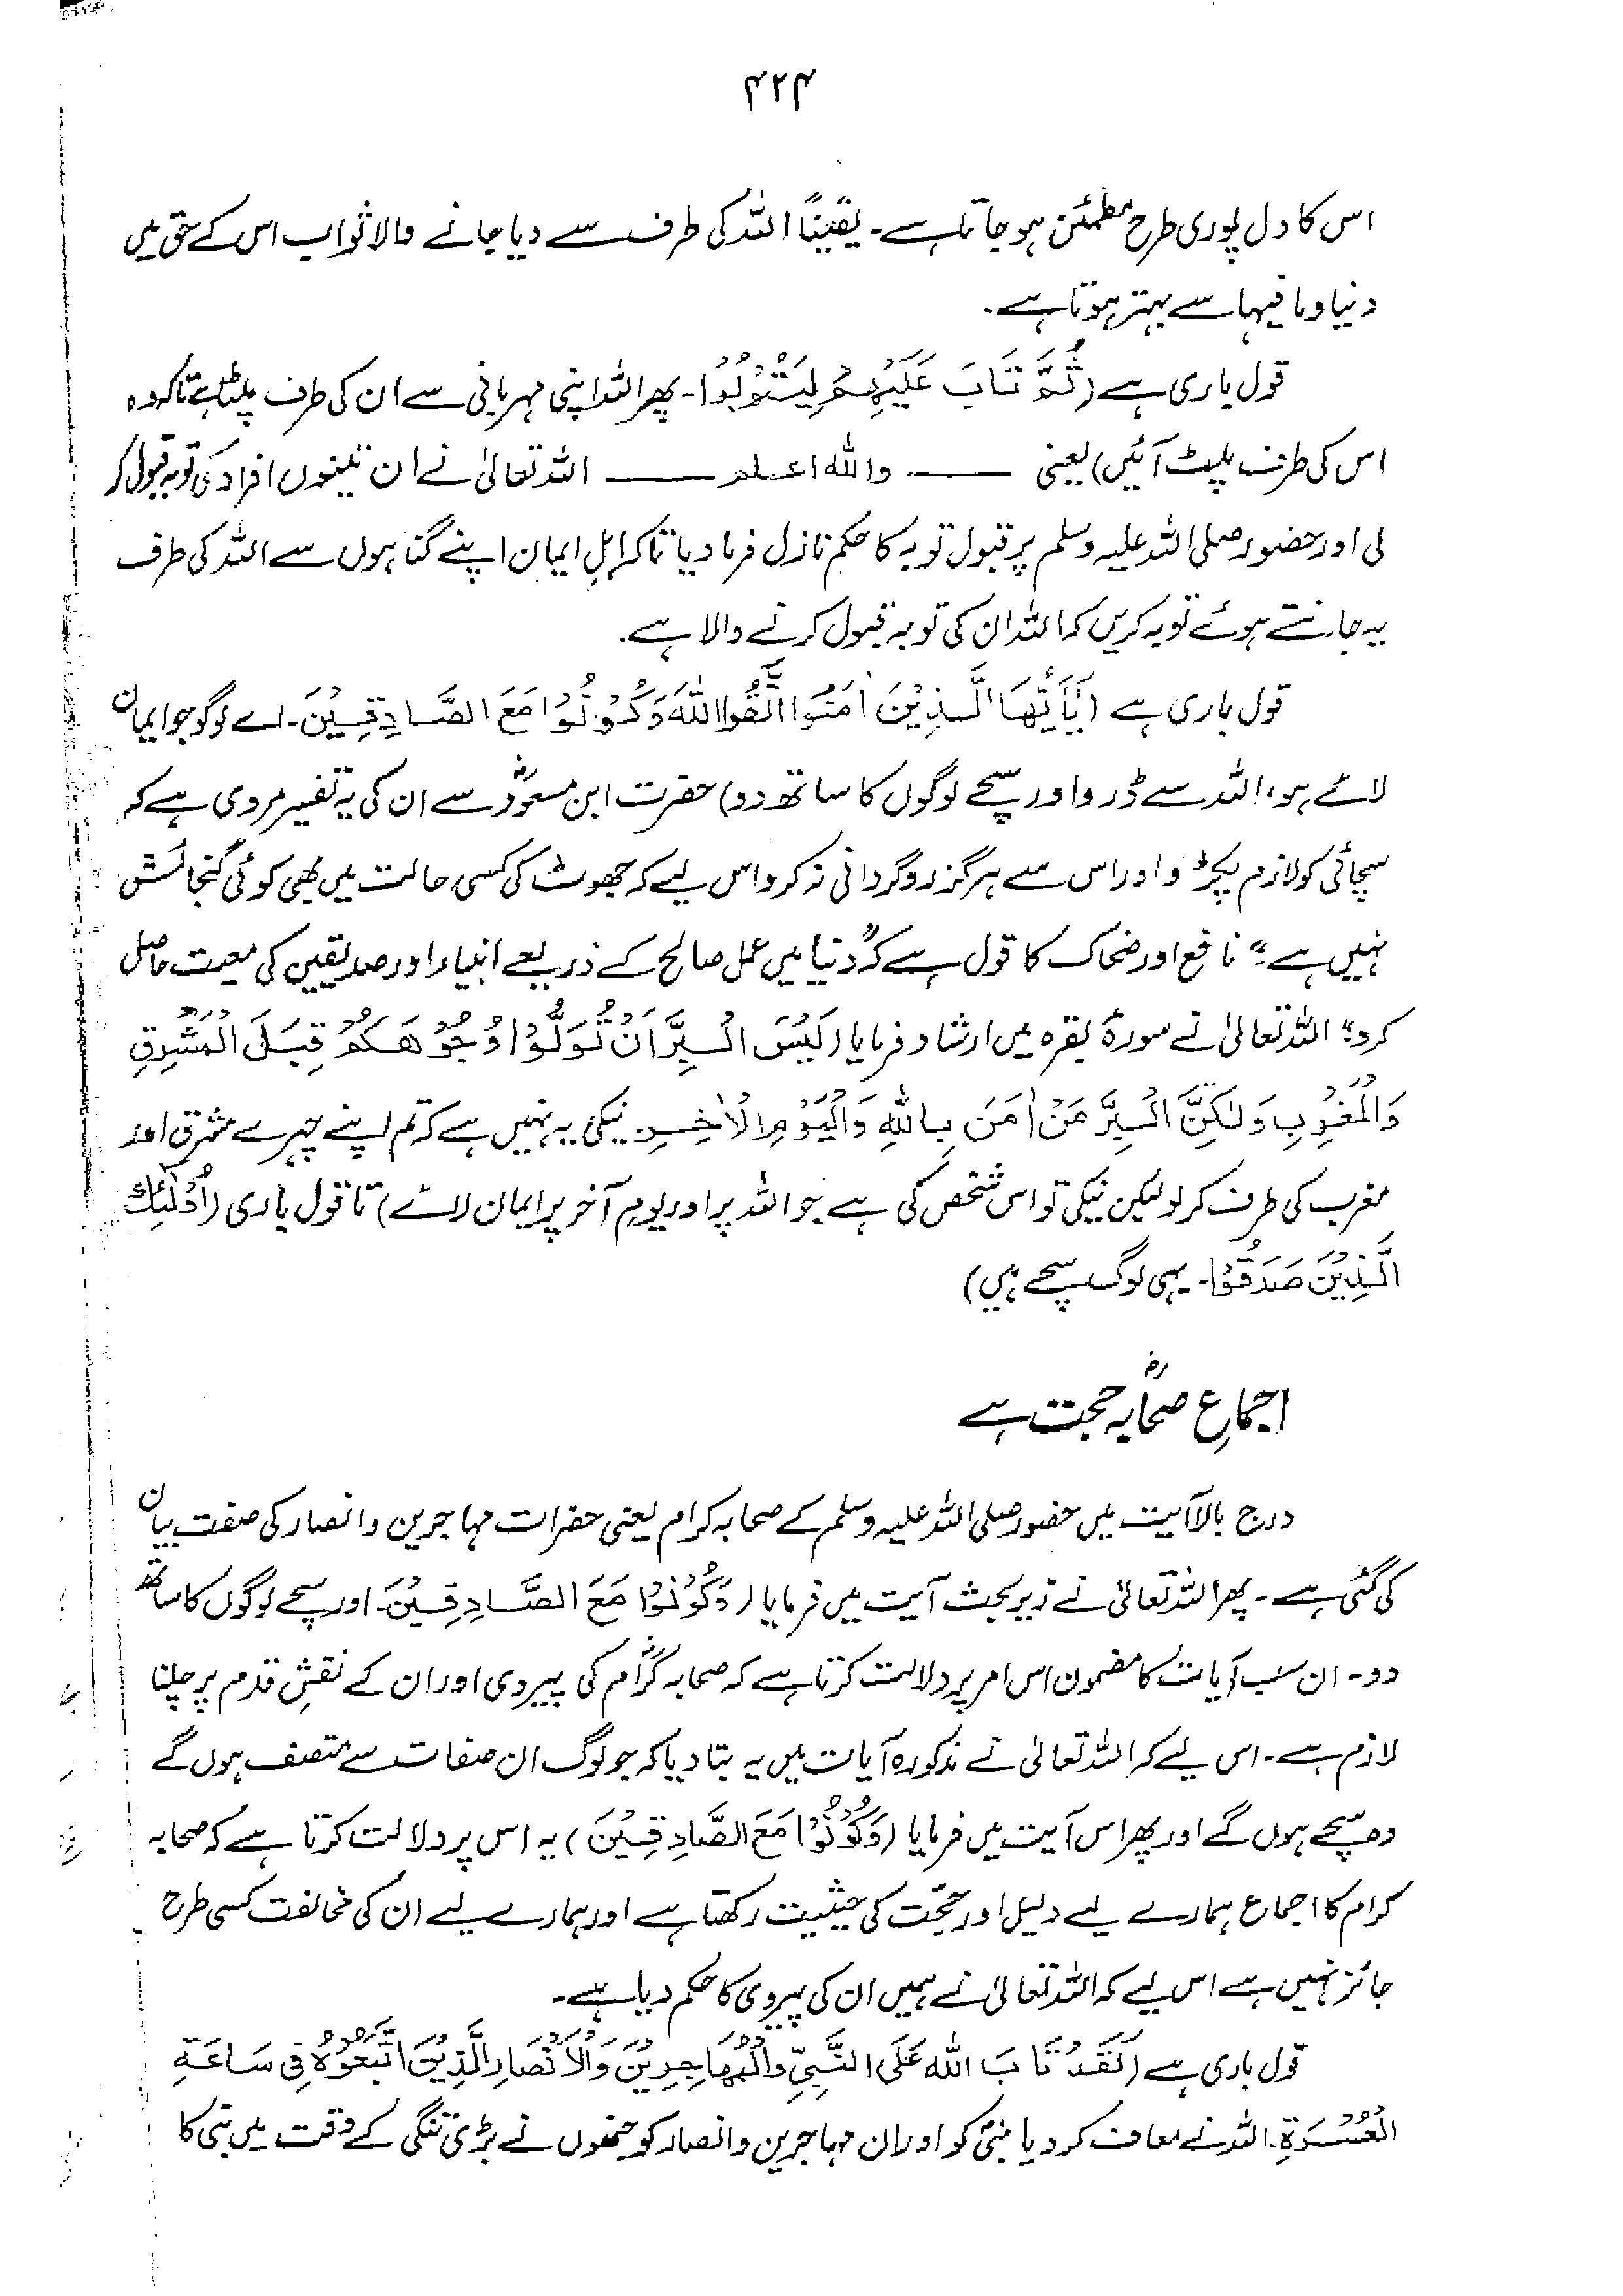 ۴۲۴
اس کا دل پوری طرح مطمئن ہو جاتا ہے۔ یقیناً اللہ کی طرف سے دیا جانے والا ثواب اس کے حق میں
دنیا وما فیہا سے بہتر ہوتا ہے۔
قول باری ہے (ثُمَّ تَابَ عَلَيْهِمْ لِيَتُوْبُوْا۔ پھر اللہ اپنی مہربانی سے ان کی طرف پلٹتا ہے تاکہ وہ
اس کی طرف پلٹ آئیں) یعنی —— واللہ اعلم —— اللہ تعالیٰ نے ان تینوں افراد کی توبہ قبول کر
لی اور حضور صلی اللہ علیہ وسلم پر قبول توبہ کا حکم نازل فرما دیا تاکہ اہلِ ایمان اپنے گناہوں سے اللہ کی طرف
یہ جانتے ہوئے توبہ کریں کہ اللہ ان کی توبہ قبول کرنے والا ہے۔
قول باری ہے (يَٰٓاَيُّهَا الَّذِيْنَ اٰمَنُوا اتَّقُوا اللّٰهَ وَكُوْنُوْا مَعَ الصَّادِقِيْنَ۔ اے لوگو جو ایمان
لائے ہو، اللہ سے ڈرو اور سچے لوگوں کا ساتھ دو) حضرت ابن مسعودؓ سے ان کی یہ تفسیر مروی ہے کہ
سچائی کو لازم پکڑو اور اس سے ہرگز روگردانی نہ کرو اس لیے کہ جھوٹ کی کسی حالت میں بھی کوئی گنجائش
نہیں ہے"۔ نافع اور ضحاک کا قول ہے کہ "دنیا میں عمل صالح کے ذریعے انبیاء اور صدیقین کی معیت حاصل
کرو"۔ اللہ تعالیٰ نے سورۂ بقرہ میں ارشاد فرمایا (لَيْسَ الْبِرَّ اَنْ تُوَلُّوْا وُجُوْهَكُمْ قِبَلَ الْمَشْرِقِ
وَالْمَغْرِبِ وَلٰكِنَّ الْبِرَّ مَنْ اٰمَنَ بِاللّٰهِ وَالْيَوْمِ الْاٰخِرِ۔ نیکی یہ نہیں ہے کہ تم اپنے چہرے مشرق اور
مغرب کی طرف کر لو لیکن نیکی تو اس شخص کی ہے جو اللہ پر اور یومِ آخر پر ایمان لائے) تا قول باری (اُولٰٓئِكَ
الَّذِيْنَ صَدَقُوْا۔ یہی لوگ سچے ہیں)
اجماعِ صحابہؓ حجت ہے
درج بالا آیت میں حضور صلی اللہ علیہ وسلم کے صحابہ کرام یعنی حضرات مہاجرین و انصار کی صفت بیان
کی گئی ہے۔ پھر اللہ تعالیٰ نے زیر بحث آیت میں فرمایا (وَكُوْنُوْا مَعَ الصَّادِقِيْنَ۔ اور سچے لوگوں کا ساتھ
دو۔ ان سب آیات کا مضمون اس امر پر دلالت کرتا ہے کہ صحابہ کرامؓ کی پیروی اور ان کے نقشِ قدم پر چلنا
لازم ہے۔ اس لیے کہ اللہ تعالیٰ نے مذکورہ آیات میں یہ بتا دیا کہ جو لوگ ان صفات سے متصف ہوں گے
وہ سچے ہوں گے اور پھر اس آیت میں فرمایا (وَكُوْنُوْا مَعَ الصَّادِقِيْنَ) یہ اس پر دلالت کرتا ہے کہ صحابہ
کرام کا اجماع ہمارے لیے دلیل اور حجّت کی حیثیت رکھتا ہے اور ہمارے لیے ان کی مخالفت کسی طرح
جائز نہیں ہے اس لیے کہ اللہ تعالیٰ نے ہمیں ان کی پیروی کا حکم دیا ہے۔
قول باری ہے (لَقَدْ تَابَ اللّٰهُ عَلَى النَّبِيِّ وَالْمُهَاجِرِيْنَ وَالْاَنْصَارِ الَّذِيْنَ اتَّبَعُوْهُ فِيْ سَاعَةِ
الْعُسْرَةِ۔ اللہ نے معاف کر دیا نبیؐ کو اور ان مہاجرین و انصار کو جنھوں نے بڑی تنگی کے وقت میں نبی کا